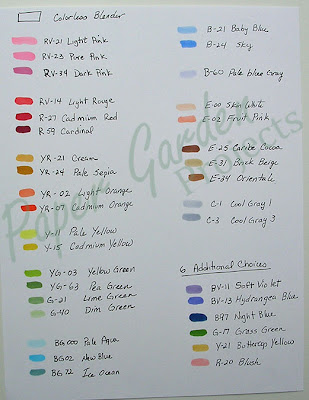 Colorless Blender
RV-21 Light Pink
RV-23 Pure Pink
RV-34 Dark Pink
RV-14 Light Rouge
R-27 Cadmium Red
R 59 Cardinal
YR-21 Cream
YR-24 Pale Sepia
YR-02 Light Orange
YR-07 Cadmium Orange
Y-11 Pale Yellow
Y-15 Cadmium Yellow
YG-03 Yellow Green
YG-63 Pea Green
G-21 Lime Green
G-40 Dim Green
BG000 Pale Aqua
BG02 New Blue
BG72 Ice Ocean
B-21 Baby Blue
B-24 Sky
B-60 Pale blue Gray
E-00 Skin White
E-02 Fruit Pink
E-25 Caribe Cocoa
E-31 Brick Beige
E-34 Orientale
C-1 Cool Gray 1
C-3 Cool Gray 3
6 Additional Choices
BV-11 Soft Violet
BV-13 Hydrangea Blue
B97 Night Blue
G-17 Grass Green
Y-21 Buttercup Yellow
R-20 Blush
Paper Garden